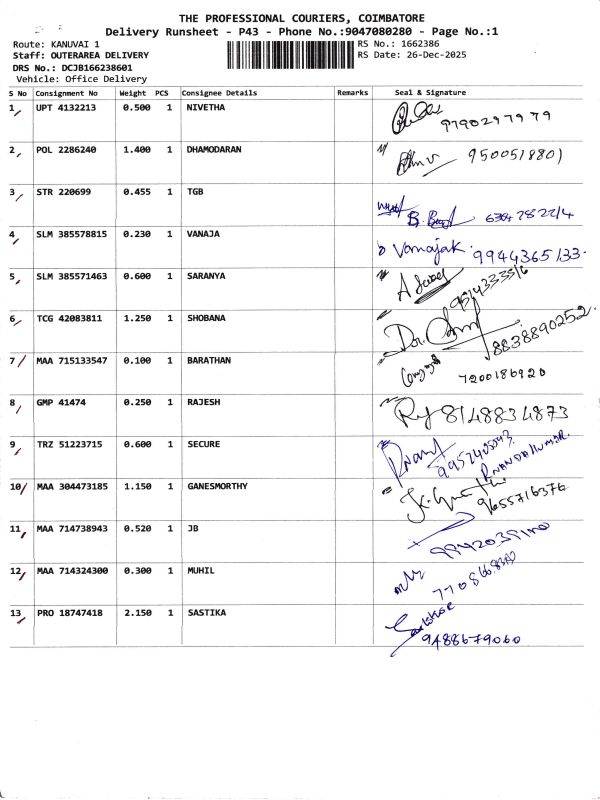 THE PROFESSIONAL COURIERS, COIMBATORE
Delivery Runsheet - P43 - Phone No.:9047080280 - Page No.:1
Route: KANUVAI 1
RS No.: 1662386
Staff: OUTERAREA DELIVERY
RS Date: 26-Dec-2025
DRS No.: DCJB166238601
Vehicle: Office Delivery
S No Consignment No Weight PCS Consignee Details Remarks Seal & Signature
1 UPT 4132213 0.500 1 NIVETHA 9790297979
2 POL 2286240 1.400 1 DHAMODARAN 9500518801
3 STR 220699 0.455 1 TGB
4 SLM 385578815 0.230 1 VANAJA Vanajak. 9944365133.
5 SLM 385571463 0.600 1 SARANYA
6 TCG 42083811 1.250 1 SHOBANA 8838890252.
7 MAA 715133547 0.100 1 BARATHAN 7200186920
8 GMP 41474 0.250 1 RAJESH 8148834873
9 TRZ 51223715 0.600 1 SECURE
10 MAA 304473185 1.150 1 GANESMORTHY 9655716376
11 MAA 714738943 0.520 1 JB
12 MAA 714324300 0.300 1 MUHIL
13 PRO 18747418 2.150 1 SASTIKA 9488679060